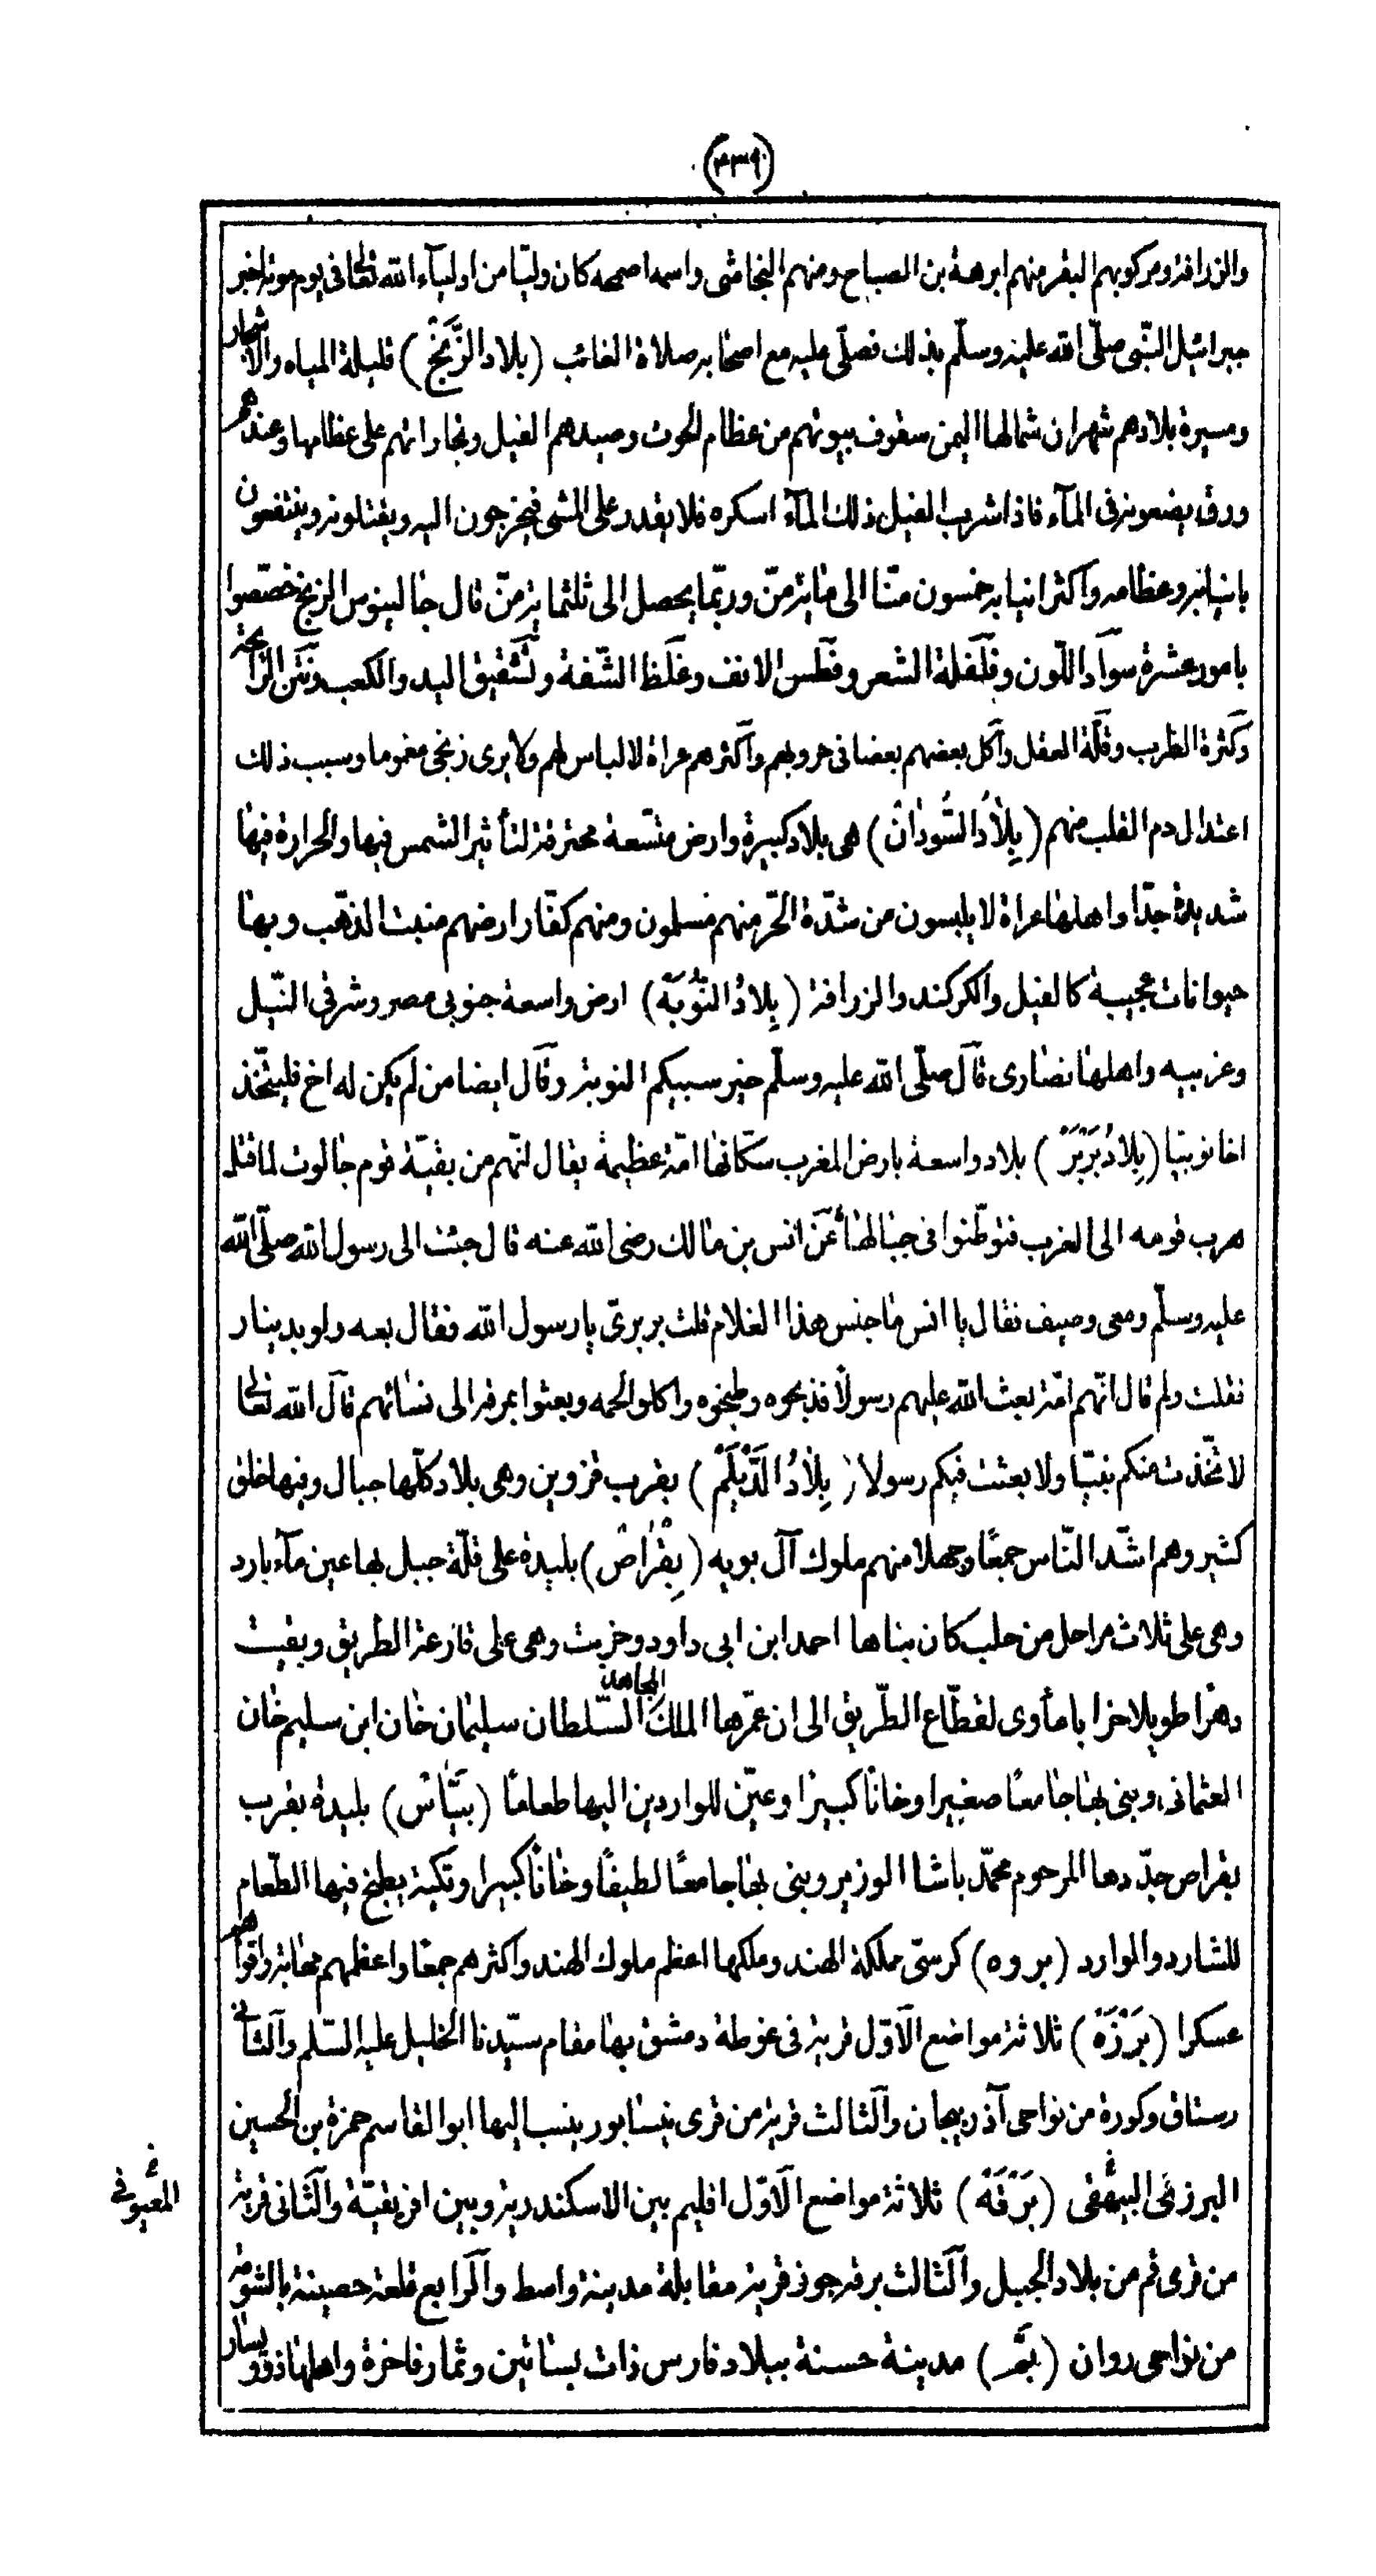 (٤٣٩)
والزرافة ومركوبهم البقر منهم ابرهة بن الصباح ومنهم النجاشى واسمه اصحمه كان وليّا من اوليآء الله تعالى فى يوم موته اخبر
جبرائيل النّبى صلّى الله عليه وسلّم بذلك فصلّى عليه مع اصحابه صلاة الغائب (بلاد الزَّنْج) قليلة المياه والاشجار
ومسيرة بلادهم شهران شمالها اليمن سقوف بيوتهم من عظام الحوت وصيدهم الفيل وتجاراتهم على عظامها وعندهم
ورق يضعونه فى المآء فاذا شرب الفيل ذلك المآء اسكره فلا يقدر على المشى فيخرجون اليه ويقتلونه وينتفعون
بانيابه وعظامه واكثر انيابه خمسون منّا الى مائة منّ وربّما يحصل الى ثلثمائة منّ قال جالينوس الزنج خصّصوا
بامور عشرة سواد اللّون وفلفلة الشعر وفطس الانف وغلظ الشّفة وتشقيق اليد والكعب ونتن الرّائحة
وكثرة الطرب وقلّة العقل واكل بعضهم بعضا فى حروبهم واكثرهم عراة لا لباس لهم ولا يرى زنجى مغموما وسبب ذلك
اعتدال دم القلب منهم (بِلاَدُ السُّودَانْ) هى بلاد كبيرة وارض متّسعة محترقة لتأثير الشمس فيها والحرارة فيها
شديدة جدّا واهلها عراة لا يلبسون من شدّة الحّر منهم مسلمون ومنهم كفّار ارضهم منبت الذهب وبها
حيوانات عجيبة كالفيل والكركند والزرافة (بِلادُ النُّوبَة) ارض واسعة جنوبى مصر وشرقى النّيل
وغربيه واهلها نصارى قال صلّى الله عليه وسلّم خير سبيكم النوبة وقال ايضا من لم يكن له اخ فليتّخذ
اخا نوبيّا (بِلادُ بَرْبَرْ) بلاد واسعة بارض المغرب سكّانها امّة عظيمة يقال انّهم من بقيّة قوم جالوت لما قتل
هرب قومه الى الغرب فتوطّنوا فى جبالها عَنْ انس بن مالك رضى الله عنه قال جئت الى رسول الله صلّى الله
عليه وسلّم ومعى وصيف فقال يا انس ما جنس هذا الغلام قلت بربرىّ يا رسول الله فقال بعه ولو بدينار
فقلت ولم قال انّهم امّة بعث الله عليهم رسولاً فذبحوه وطبخوه واكلوا لحمه وبعثوا بمرقه الى نسائهم قال الله تعالى
لا تّخذت منكم نبيّا ولا بعثت فيكم رسولا (بِلاَدُ الدَّيْلَمْ) بقرب قزوين وهى بلاد كلّها جبال وبها خلق
كثير وهم اشّد النّاس جمعًا وجهلا منهم ملوك آل بويه (بِقْرَاصْ) بليدة على قلّة جبل بها عين مآء بارد
وهى على ثلاث مراحل من حلب كان بناها احمد ابن ابى داود وخربت وهى على قارعة الطريق وبقيت
دهرا طويلا خرابا مأوى لقطّاع الطّريق الى ان عمّرها الملك المجاهد السّلطان سليمان خان ابن سليم خان
العثمانى وبنى بها جامعًا صغيرا وخانًا كبيرًا وعيّن للواردين اليها طعامًا (بَيّاسْ) بليدة بقرب
بقراص جدّدها المرحوم محمّد باشا الوزير وبنى بها جامعًا لطيفًا وخانًا كبيرا وتكية يطبخ فيها الطّعام
للشارد والوارد (بروه) كرسىّ مملكة الهند وملكها اعظم ملوك الهند واكثرهم جمعا واعظمهم مهابة واقواهم
عسكرا (بَرْزَهْ) ثلاثة مواضع الاَوّل قرية فى غوطة دمشق بها مقام سيّدنا الخليل عليه السّلم والثّانى
رستاق وكورة من نواحى آذربيجان والثالث قرية من قرى نيسابور ينسب اليها ابو القاسم حمزة بن الحسين
البرزنى البيهقى (بَرْقَهْ) ثلاثة مواضع الاَوّل اقليم بين الاسكندرية وبين افريقيّة والثّانى قرية
من قرى قم من بلاد الجبل والثالث برقه جوذ قرية مقابلة مدينة واسط والرابع قلعة حصينة
من نواحى دوان (بَمّ) مدينة حسنة ببلاد فارس ذات بساتين وثمار فاخرة واهلها ذوو يسار